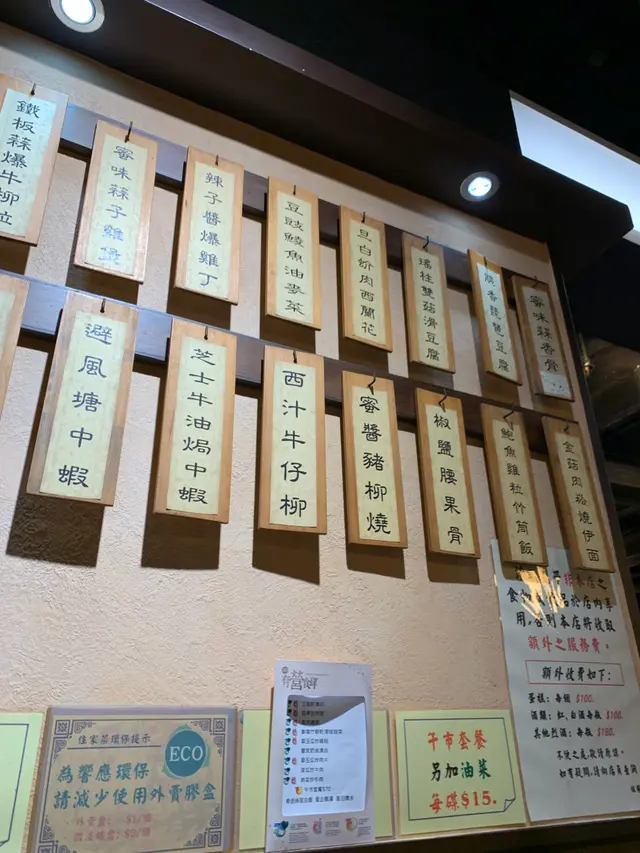 鐵板蒜爆牛柳粒
蜜味蒜子雞煲
辣子醬爆雞丁
豆豉鯪魚油麥菜
旦白蚧肉西蘭花
瑤柱雙菇滑豆腐
脆香琵琶豆腐
蜜味蒜香骨
避風塘中蝦
芝士牛油焗中蝦
西汁牛仔柳
蜜醬豬柳燒
椒鹽腰果骨
鮑魚雞粒竹筒飯
金菇肉崧燒伊面
食物
品於店內享
用,否則本店將收取
額外之服務費。
額外收費如下:
蛋糕:每個 $100.
酒類:紅,白酒每瓶 $100.
其他烈酒:每瓶 $180.
不便之處,敬請原諒。
如有疑問,請向店員查詢
住家菜環保提示
ECO
為響應環保
請減少使用外賣膠盒
外賣盒: $1/個
午市套餐
另加油菜
每碟$15.